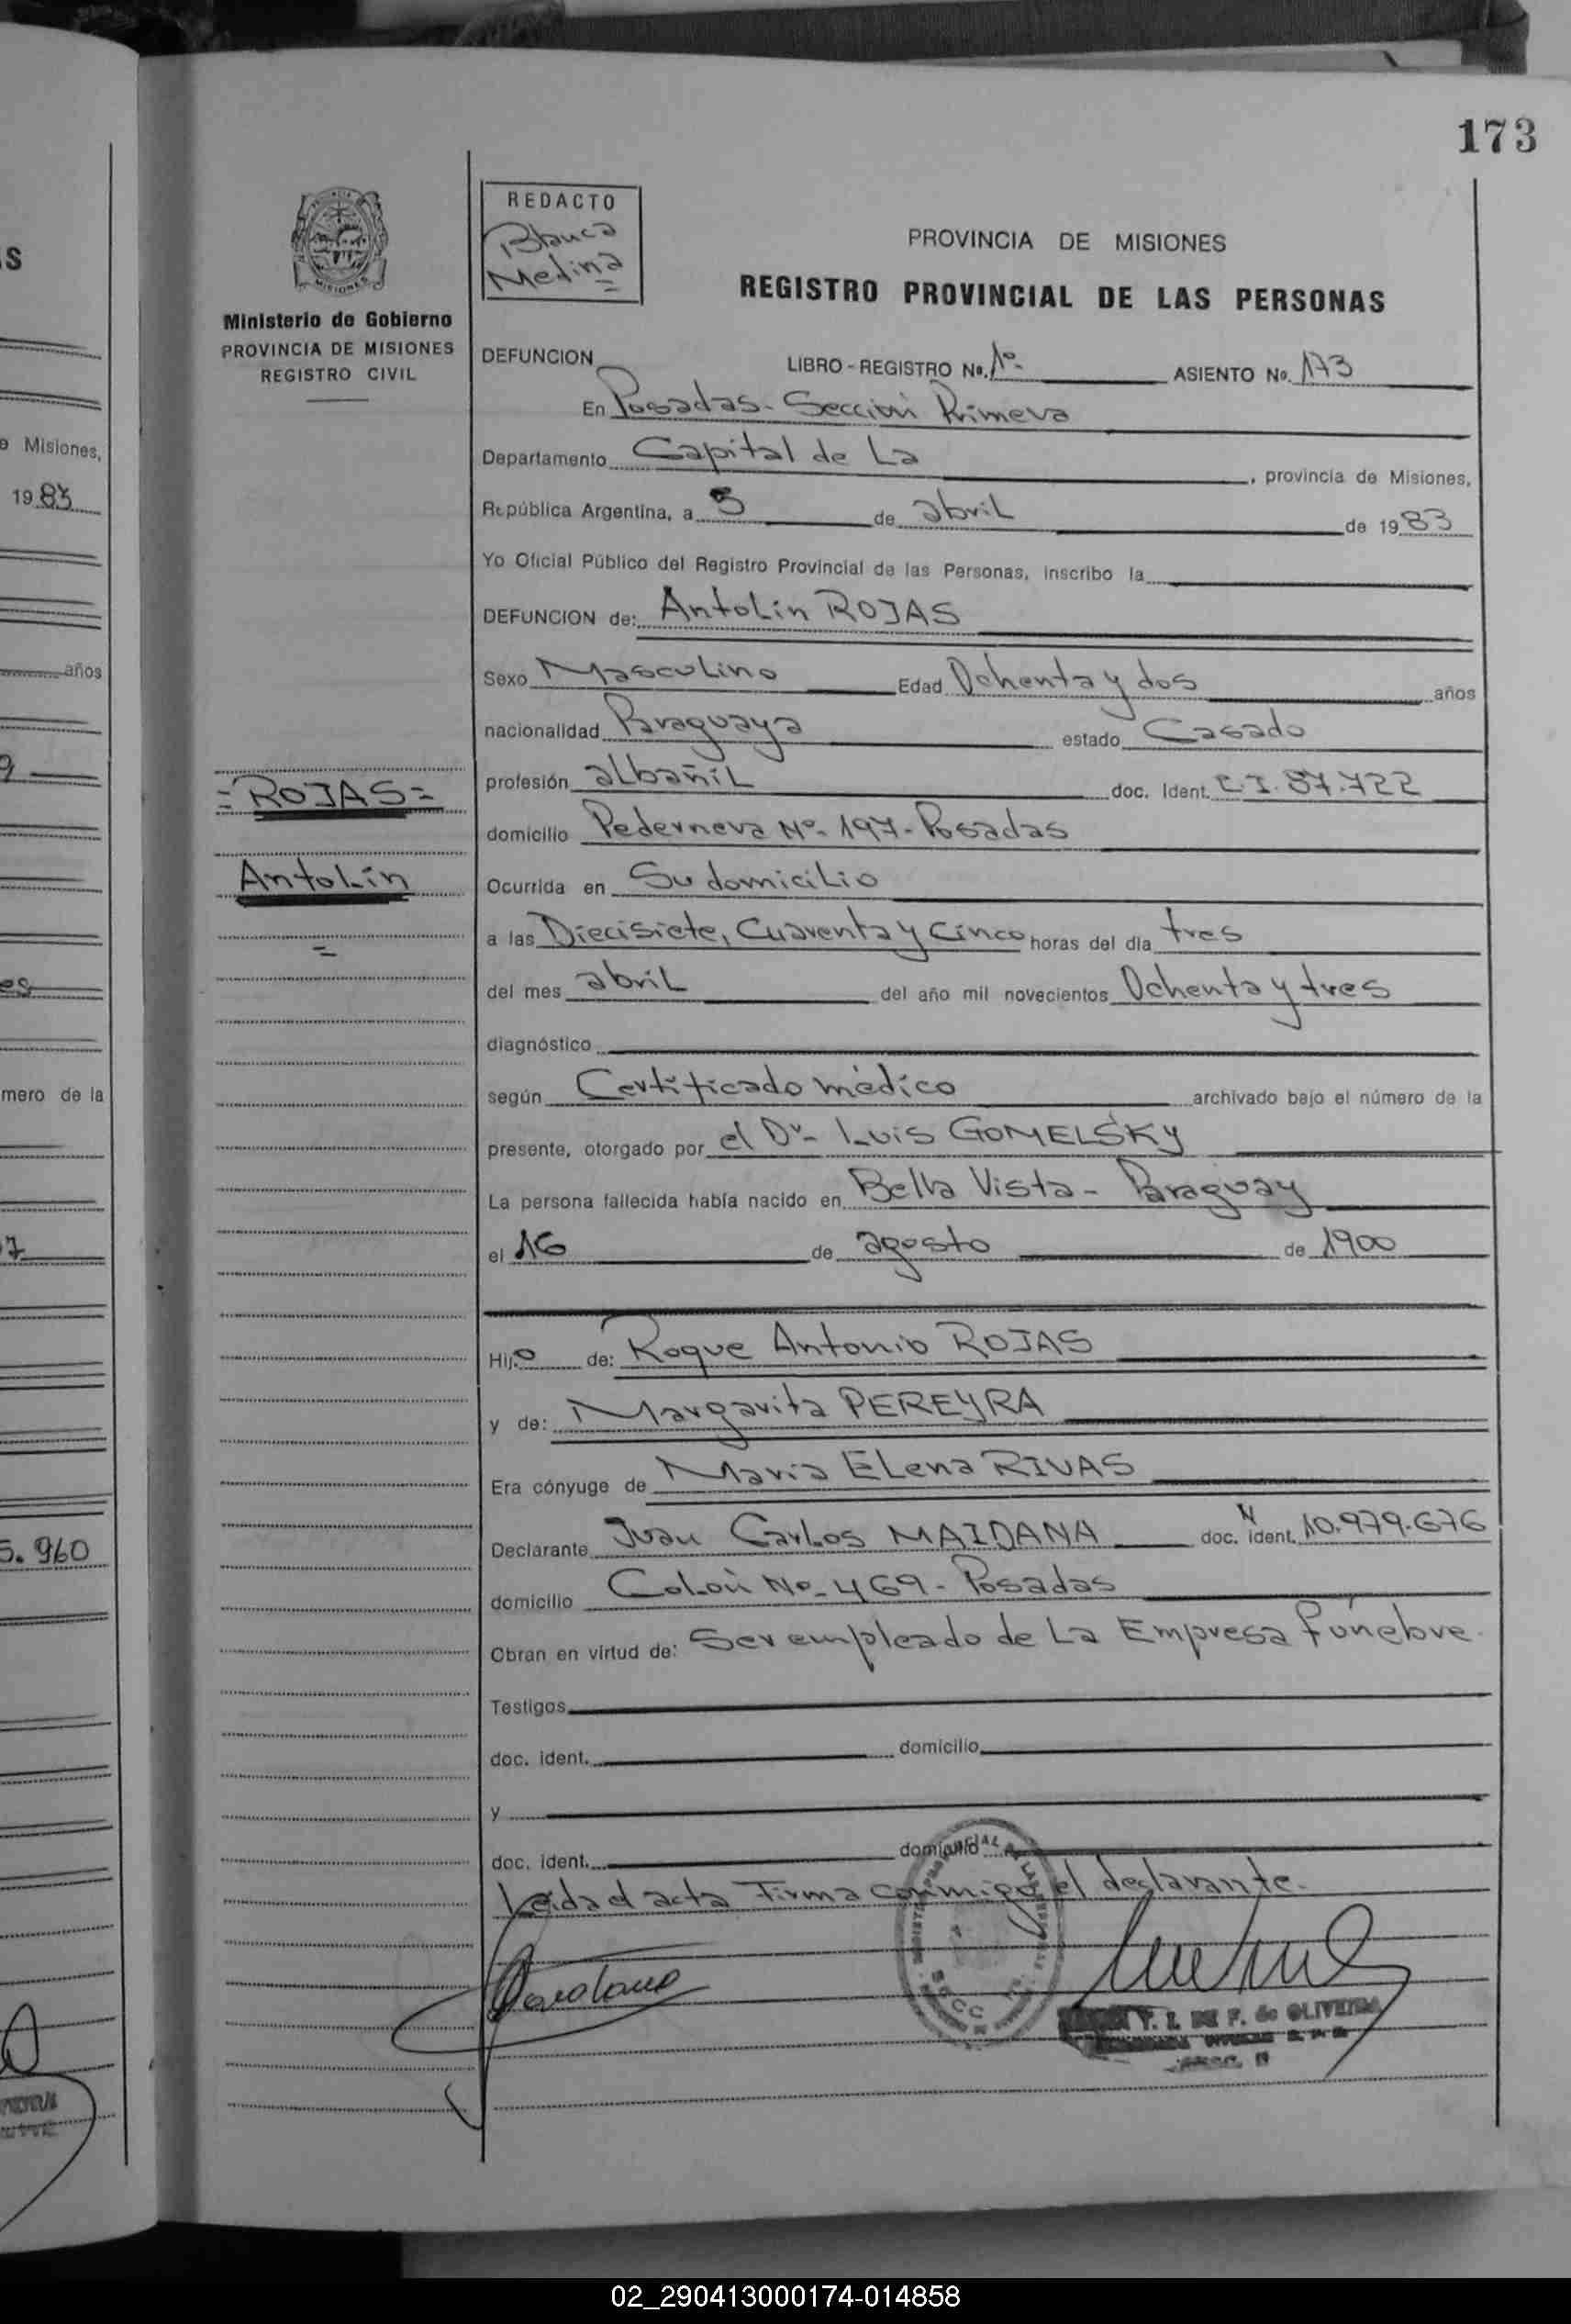 173
REDACTO
Blanca
Medina
PROVINCIA DE MISIONES
REGISTRO PROVINCIAL DE LAS PERSONAS
MISIONES
Ministerio de Gobierno
PROVINCIA DE MISIONES
REGISTRO CIVIL
DEFUNCION LIBRO - REGISTRO No. 1º- ASIENTO No. 173
En Posadas- Sección Primera
Departamento Capital de La, provincia de Misiones,
República Argentina, a 5 de abril de 1983
Yo Oficial Público del Registro Provincial de las Personas, inscribo la
DEFUNCION de: Antolin ROJAS
Sexo Masculino Edad Ochenta y dos años
nacionalidad Paraguaya estado Casado
profesión albañil doc. Ident. C.I. 57.722
domicilio Pedernera Nº- 197- Posadas
Ocurrida en Su domicilio
a las Diecisiete, Cuarenta y Cinco horas del día tres
del mes abril del año mil novecientos Ochenta y tres
diagnóstico
según Certificado médico archivado bajo el número de la
presente, otorgado por el Dr- Luis GOMELSKY
La persona fallecida había nacido en Bella Vista- Paraguay
el 16 de agosto de 1900
Hijo de: Roque Antonio ROJAS
y de: Margarita PEREYRA
Era cónyuge de Maria Elena RIVAS
Declarante Juan Carlos MAIDANA doc. ident. N 10.979.676
domicilio Colón Nº- 469- Posadas
Obran en virtud de: Ser empleado de La Empresa fúnebre.
Testigos
doc. ident. domicilio
y
doc. ident. domicilio
Leida el acta Firma conmigo el declarante.
Y. I. DE F. de OLIVEIRA
=ROJAS=
Antolin
=
S
e Misiones,
1983
años
9
es
mero de la
7
5.960
02_290413000174-014858